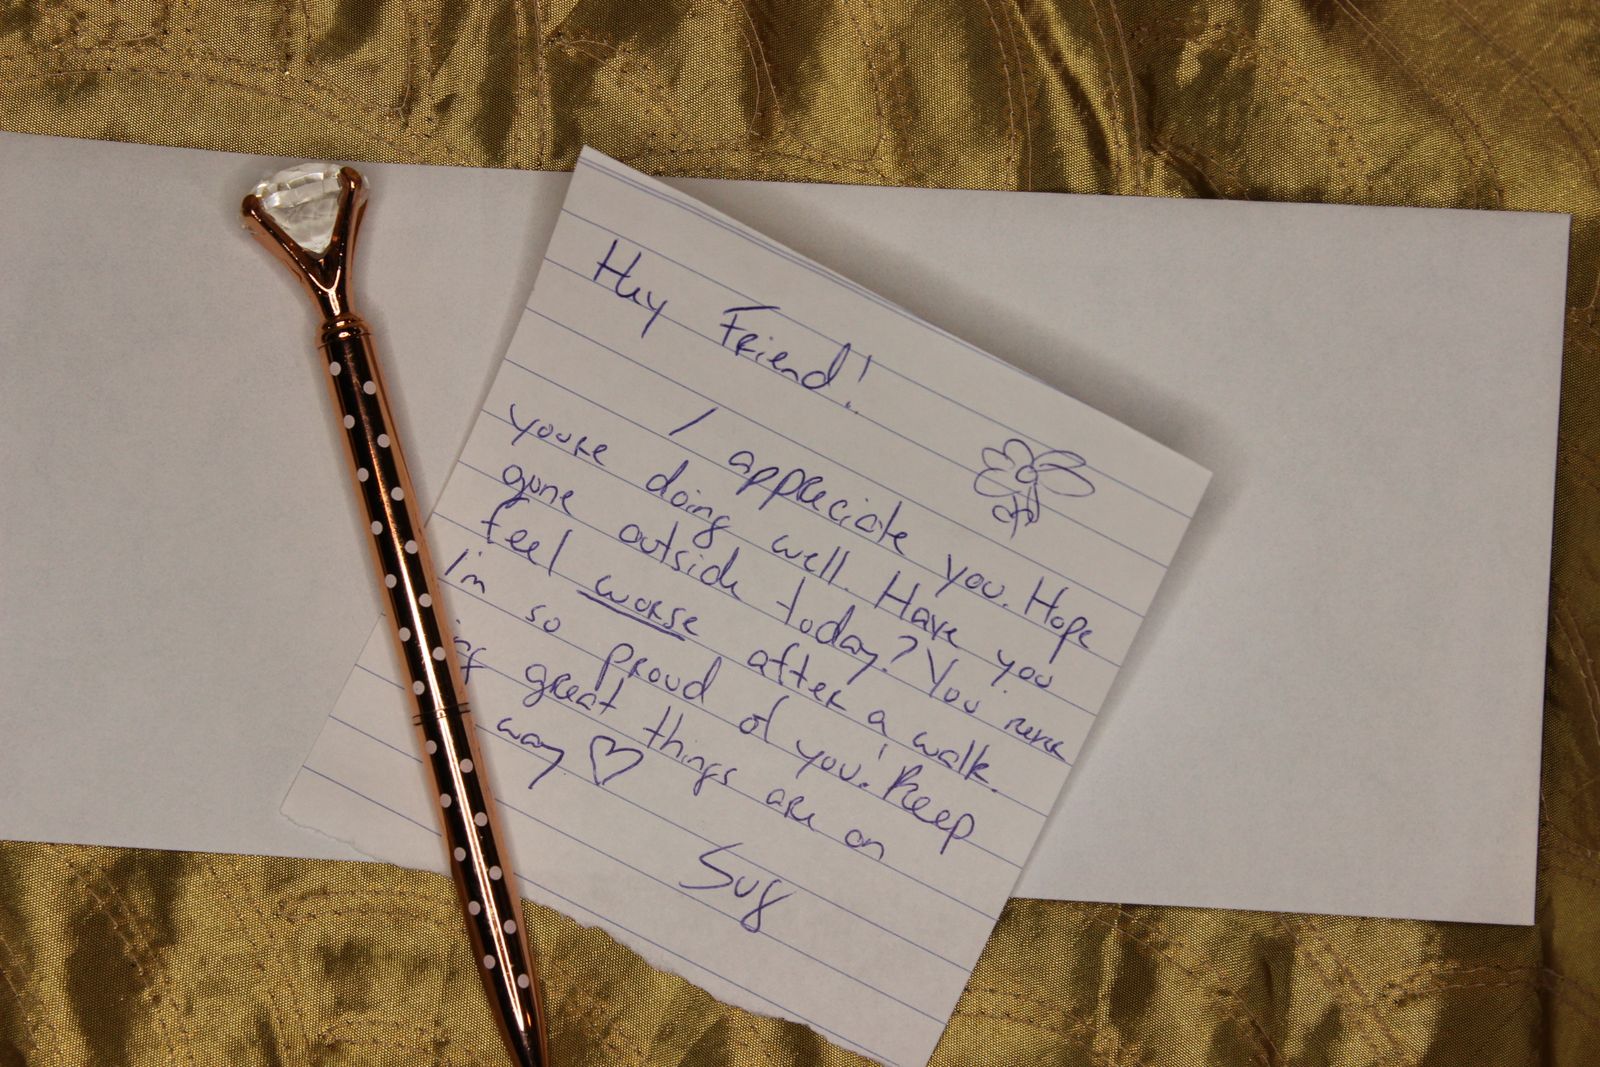 Hey Friend!
I appreciate you. Hope
youre doing well. Have you
gone outside today? You never
feel worse after a walk.
I'm so proud of you! Keep
great things are on
way ♡
Sug